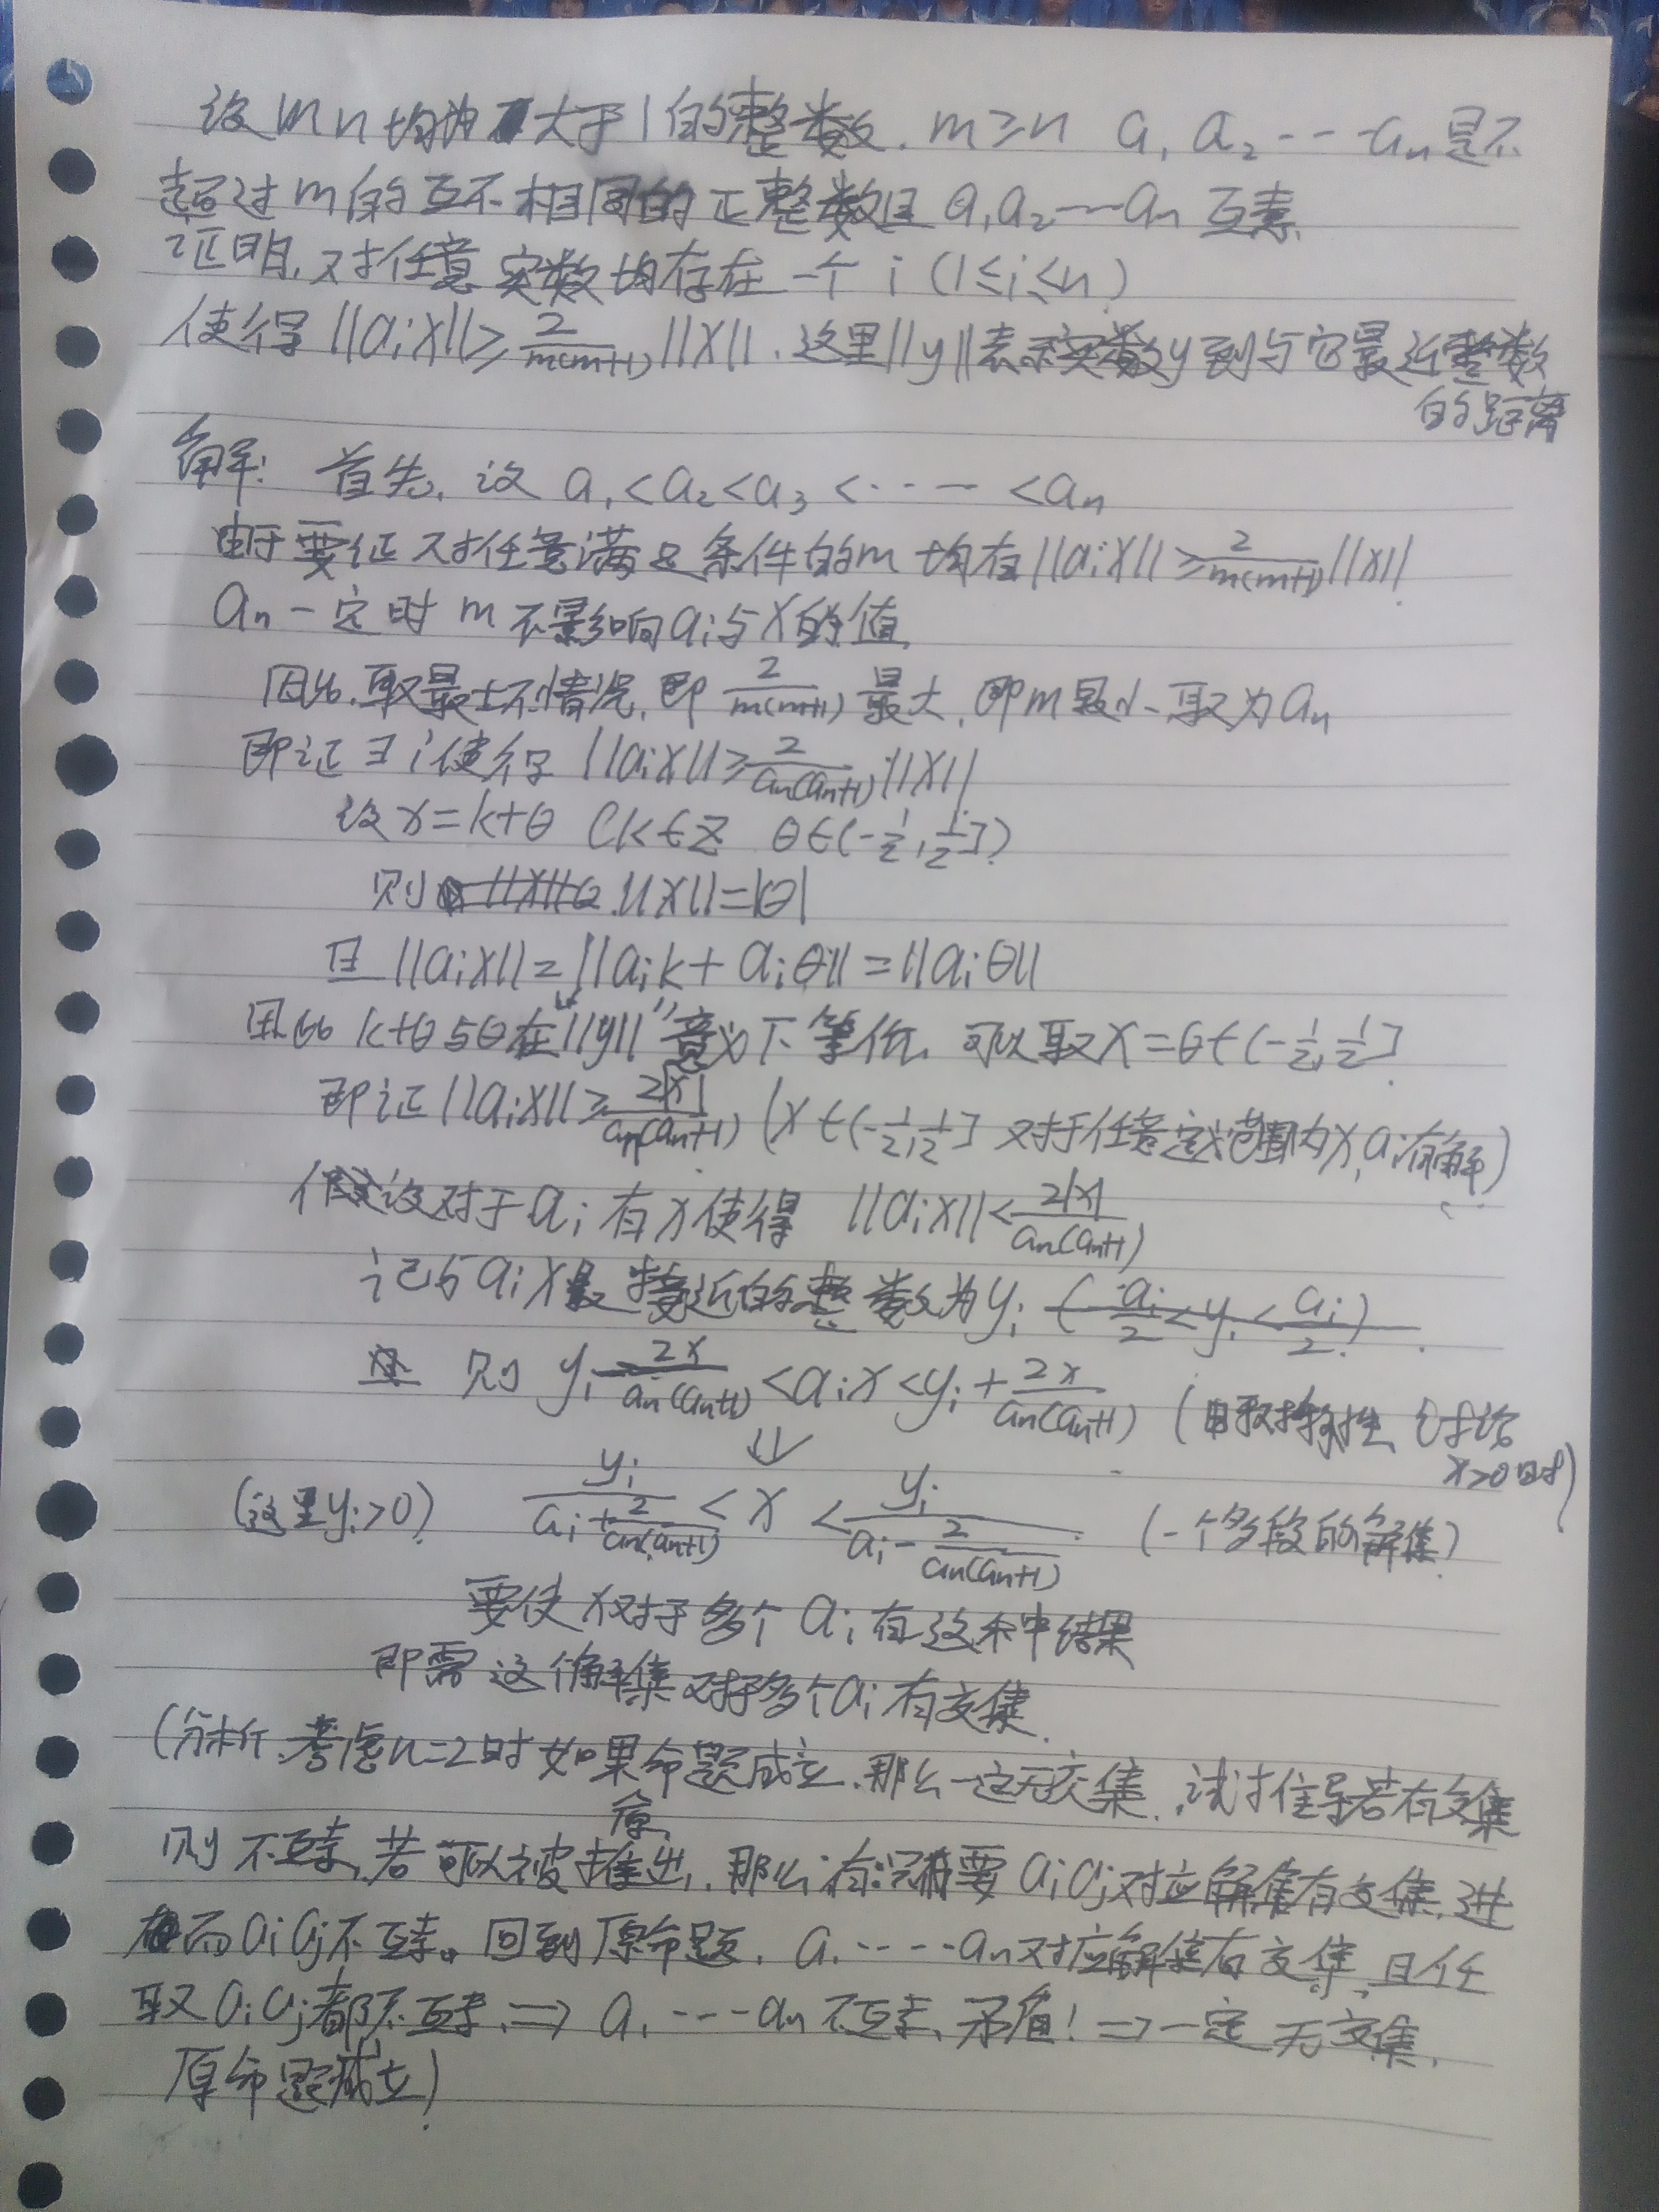 设 m n 均为大于1的整数. m≥n a₁ a₂ ---aₙ是不
超过m的互不相同的正整数且 a₁ a₂---aₙ 互素.
证明,对任意实数均存在一个 i (1≤i≤n)
使得 ||aᵢx||≥2/(m(m+1)) ||x||. 这里||y||表示实数y到与它最近整数
的距离
解: 首先, 设 a₁<a₂<a₃<---- <aₙ
由于要证对任意满足条件的m 均有||aᵢx||≥2/(m(m+1))||x||.
aₙ一定时 m 不影响aᵢ与x的值,
因此,取最坏情况,即 2/(m(m+1)) 最大,即m最小,取为aₙ
即证∃i使得 ||aᵢx||≥2/(aₙ(aₙ+1)) ||x||
设 x=k+θ (k∈Z θ∈(-1/2,1/2])
则 ||x||=|θ|
且 ||aᵢx||=||aᵢk+aᵢθ||=||aᵢθ||
因此 k+θ与θ在"||y||"意义下等价, 可以取x=θ∈(-1/2,1/2]
即证||aᵢx||≥2|x|/(aₙ(aₙ+1)) (x∈(-1/2,1/2] 对于任意定义范围内x,aᵢ有解)
假设对于aᵢ有x使得 ||aᵢx||<2|x|/(aₙ(aₙ+1))
记与aᵢx最接近的整数为yᵢ (-aᵢ/2<yᵢ<aᵢ/2)
则 yᵢ-2x/(aₙ(aₙ+1))<aᵢx<yᵢ+2x/(aₙ(aₙ+1)) (由对称性,讨论
x>0时)
⇓
(这里yᵢ>0) yᵢ/(aᵢ+2/(aₙ(aₙ+1)))<x<yᵢ/(aᵢ-2/(aₙ(aₙ+1))) (一个多段的解集)
要使x对于多个aᵢ有这种结果
即需这个解集对于多个aᵢ有交集.
(分析,考虑n=2时如果原命题成立,那么一定无交集,试推导若有交集
则不互素,若可以被推出,那么只需要aᵢaⱼ对应解集有交集,进
而aᵢaⱼ不互素。回到原命题, a₁----aₙ对应解集有交集,且任
取aᵢaⱼ都不互素,⇒ a₁---aₙ不互素,矛盾!⇒一定无交集,
原命题成立)